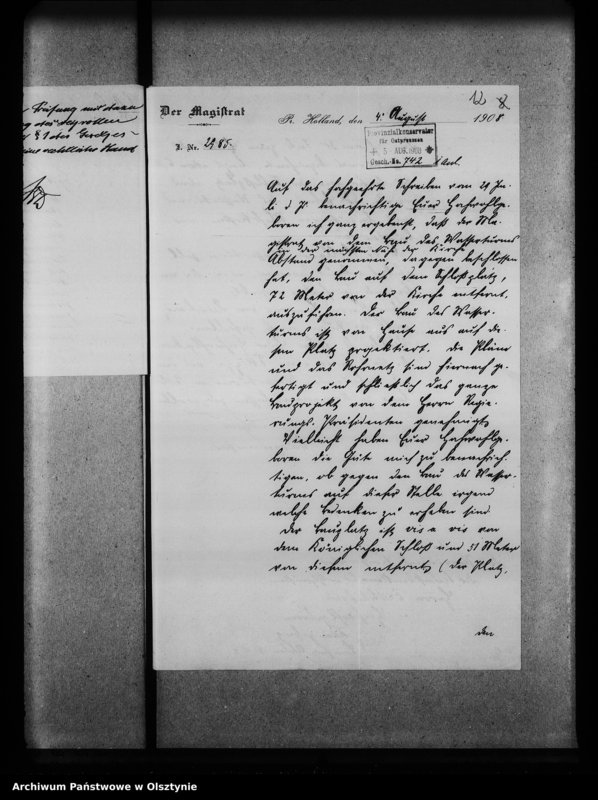 12 8
Der Magistrat
Pr. Holland, den 4. August 1908
J. Nr. 2985.
Provinzialkonservator
für Ostpreussen
5. AUG. 1908
Gesch.-No. 742 Anl.
Auf das hochgeehrte Schreiben vom 29 Ju-
li d. Js. benachrichtige Euer Hochwohlge-
boren ich ganz ergebenst, daß der Ma-
gistrat von dem Bau des Wasserturms
in der nächsten Nähe der Kirche
Abstand genommen, dagegen beschlossen
hat, den Bau auf dem Schloßplatz,
72 Meter von der Kirche entfernt,
auszuführen. Der Bau des Wasser-
turms ist von Hause aus auf die-
sem Platz projektiert. Die Pläne
und das Rohrnetz sind hiernach ge-
fertigt und schließlich das ganze
Bauprojekt von dem Herrn Regie-
rungs-Präsidenten genehmigt.
Vielleicht haben Euer Hochwohlge-
boren die Güte mich zu benachrich-
tigen, ob gegen den Bau des Wasser-
turms auf dieser Stelle irgend
welche Bedenken zu erheben sind.
Der Bauplatz ist vis a vis von
dem Königlichen Schloß und 51 Meter
von diesem entfernt (der Platz,
den
Prüfung mit dazu
§ 1 des
Archiwum Państwowe w Olsztynie